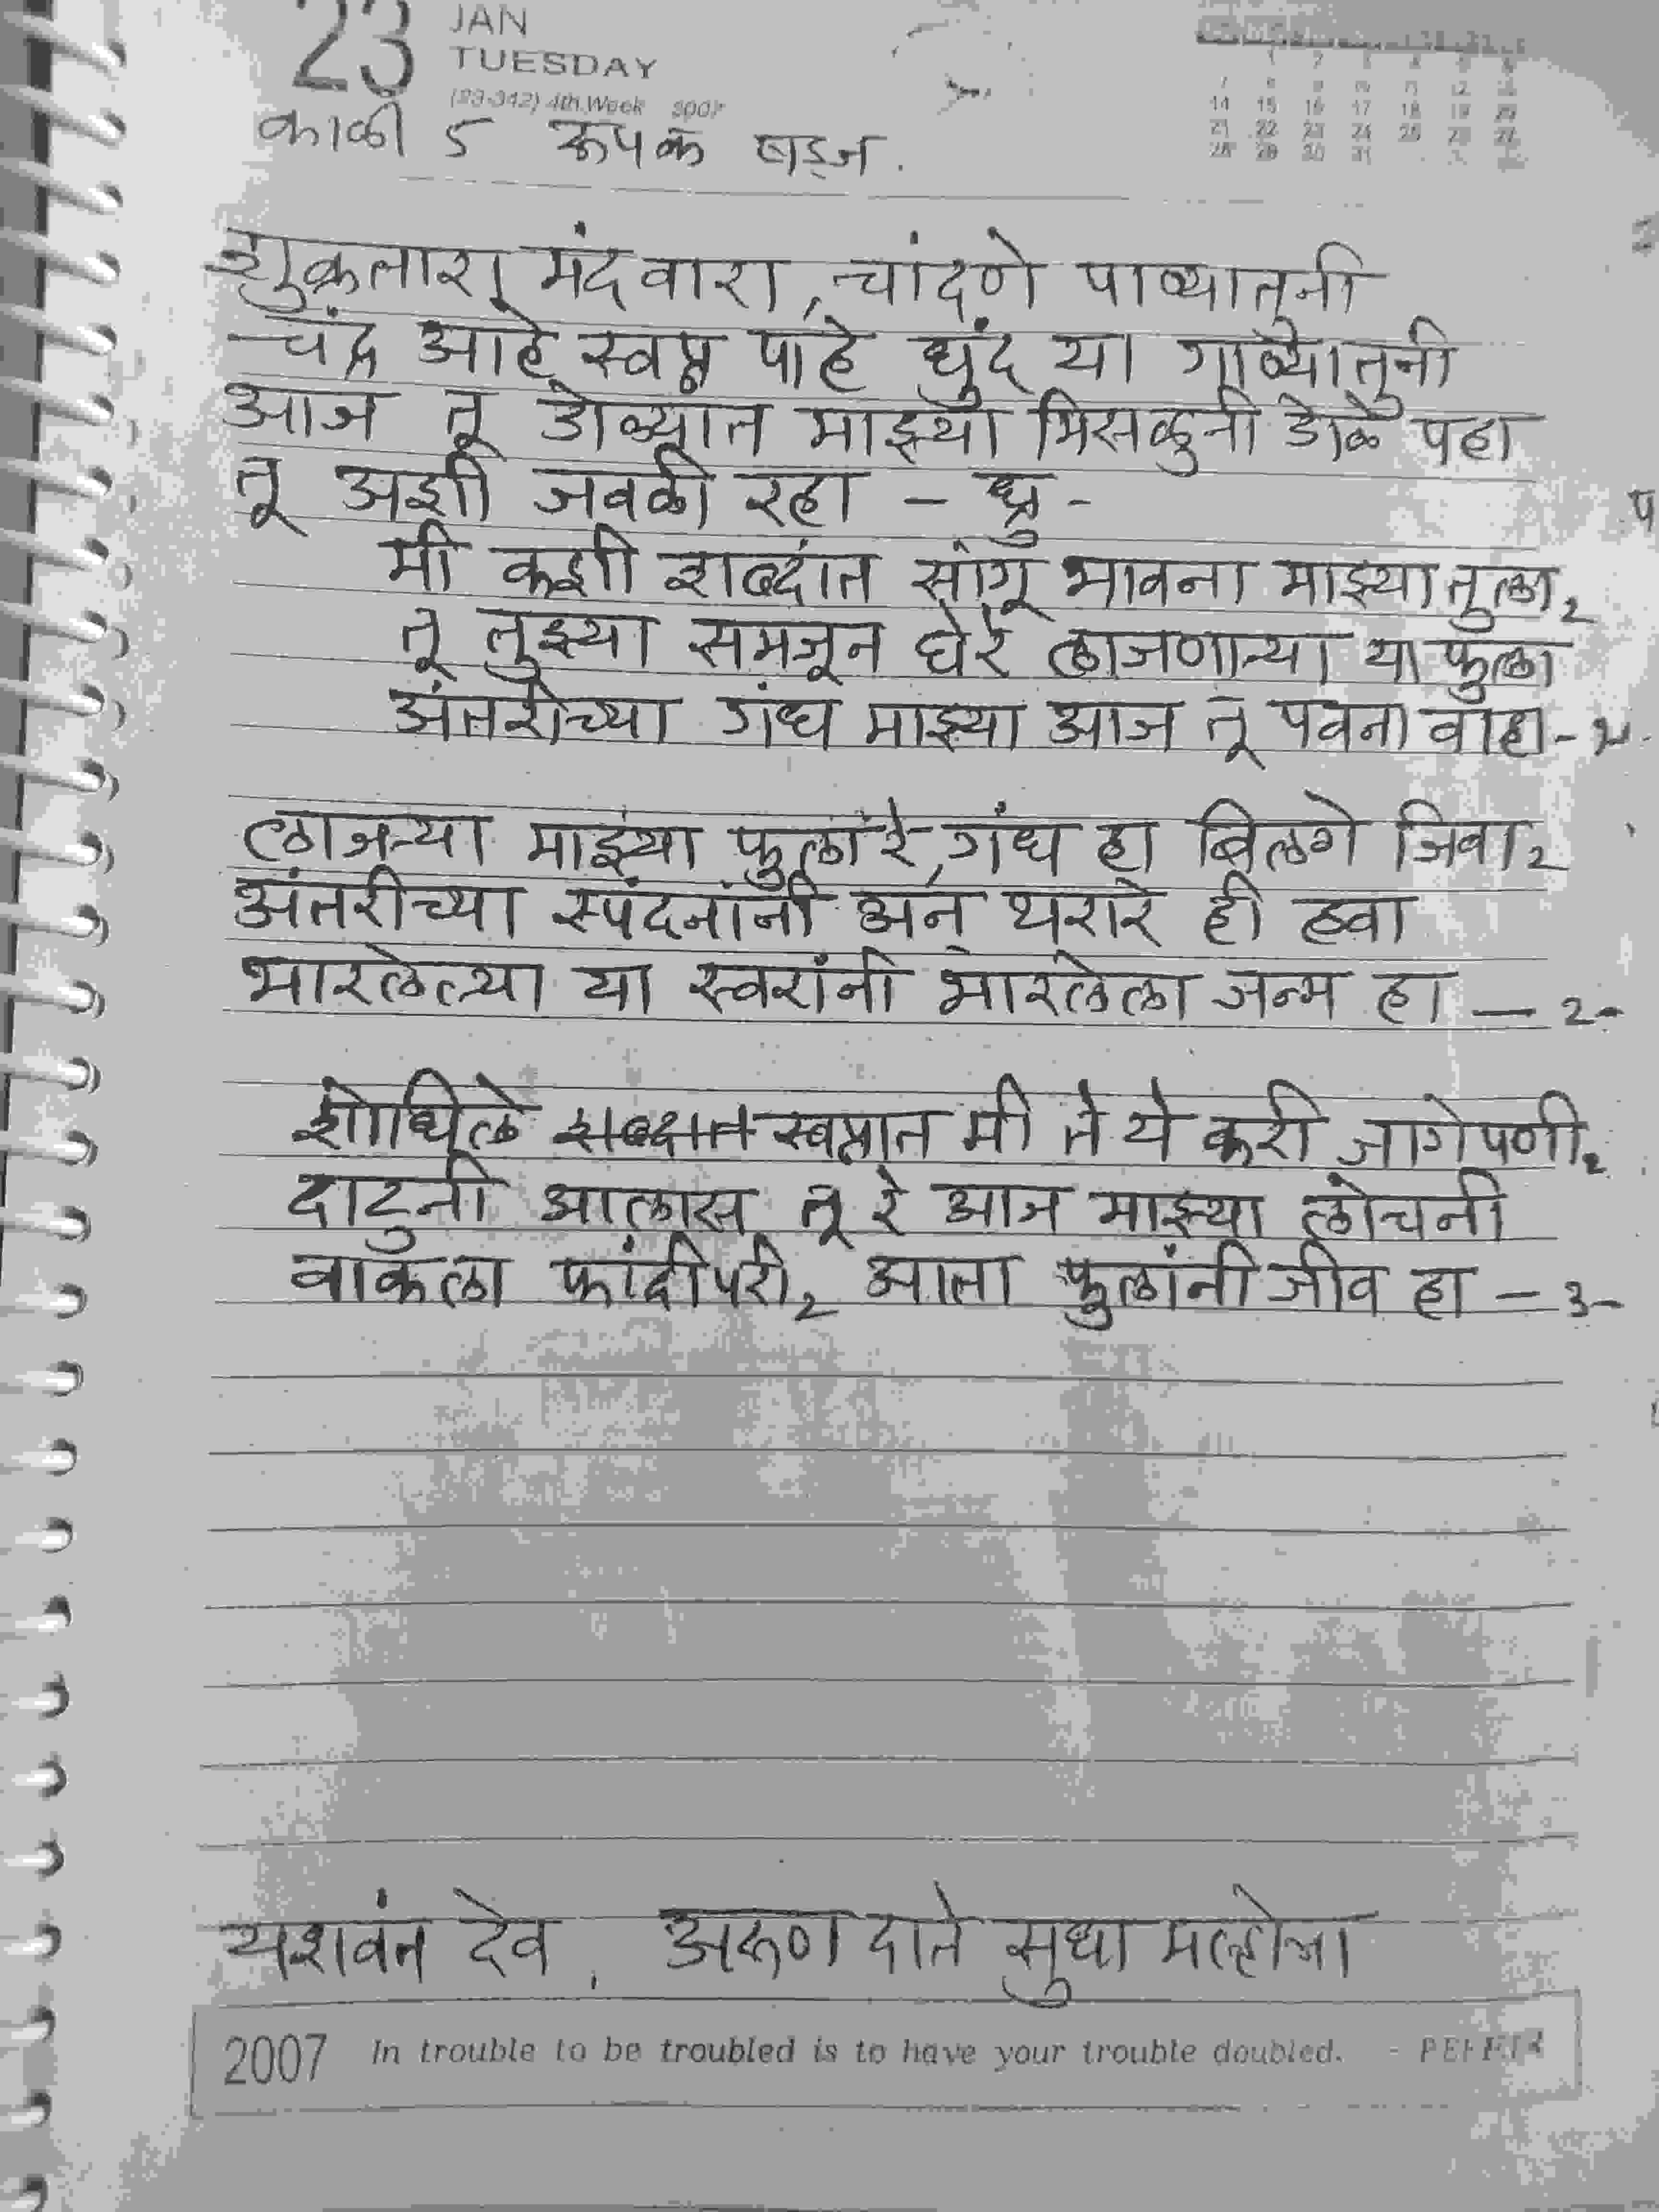 23 JAN
TUESDAY
(23-342) 4th Week 2007
1 2 3 4 5 6
7 8 9 10 11 12
14 15 16 17 18 19 20
21 22 23 24 25 26 27
28 29 30 31
काळी 5 रूपक षड्ज.
शुक्रतारा, मंद वारा, चांदणे पाण्यातुनी
चंद्र आहे स्वप्न पाहे धुंद या गाण्यातुनी
आज तू डोळ्यांत माझ्या मिसळुनी डोळे पहा
तू अशी जवळी रहा - ध्रु -
मी कशी शब्दांत सांगू भावना माझ्या तुला,2
तू तुझ्या समजून घेरे लाजणाऱ्या या फुला
अंतरीच्या गंध माझ्या आज तू पवना वाहा - १ -
लाजऱ्या माझ्या फुलांरे, गंध हा बिलगे जिवा 2
अंतरीच्या स्पंदनांनी अन् थरारे ही हवा
भारलेल्या या स्वरांनी भारलेला जन्म हा — 2 -
शोधिले शब्दात स्वप्नात मी ते ये करी जागेपणी 2
दाटुनी आलास तू रे आज माझ्या लोचनी
वाकला फांदीपरी 2 आता फुलांनी जीव हा - 3 -
यशवंत देव, अरूण दाते सुधा मल्होत्रा
2007 In trouble to be troubled is to have your trouble doubled.